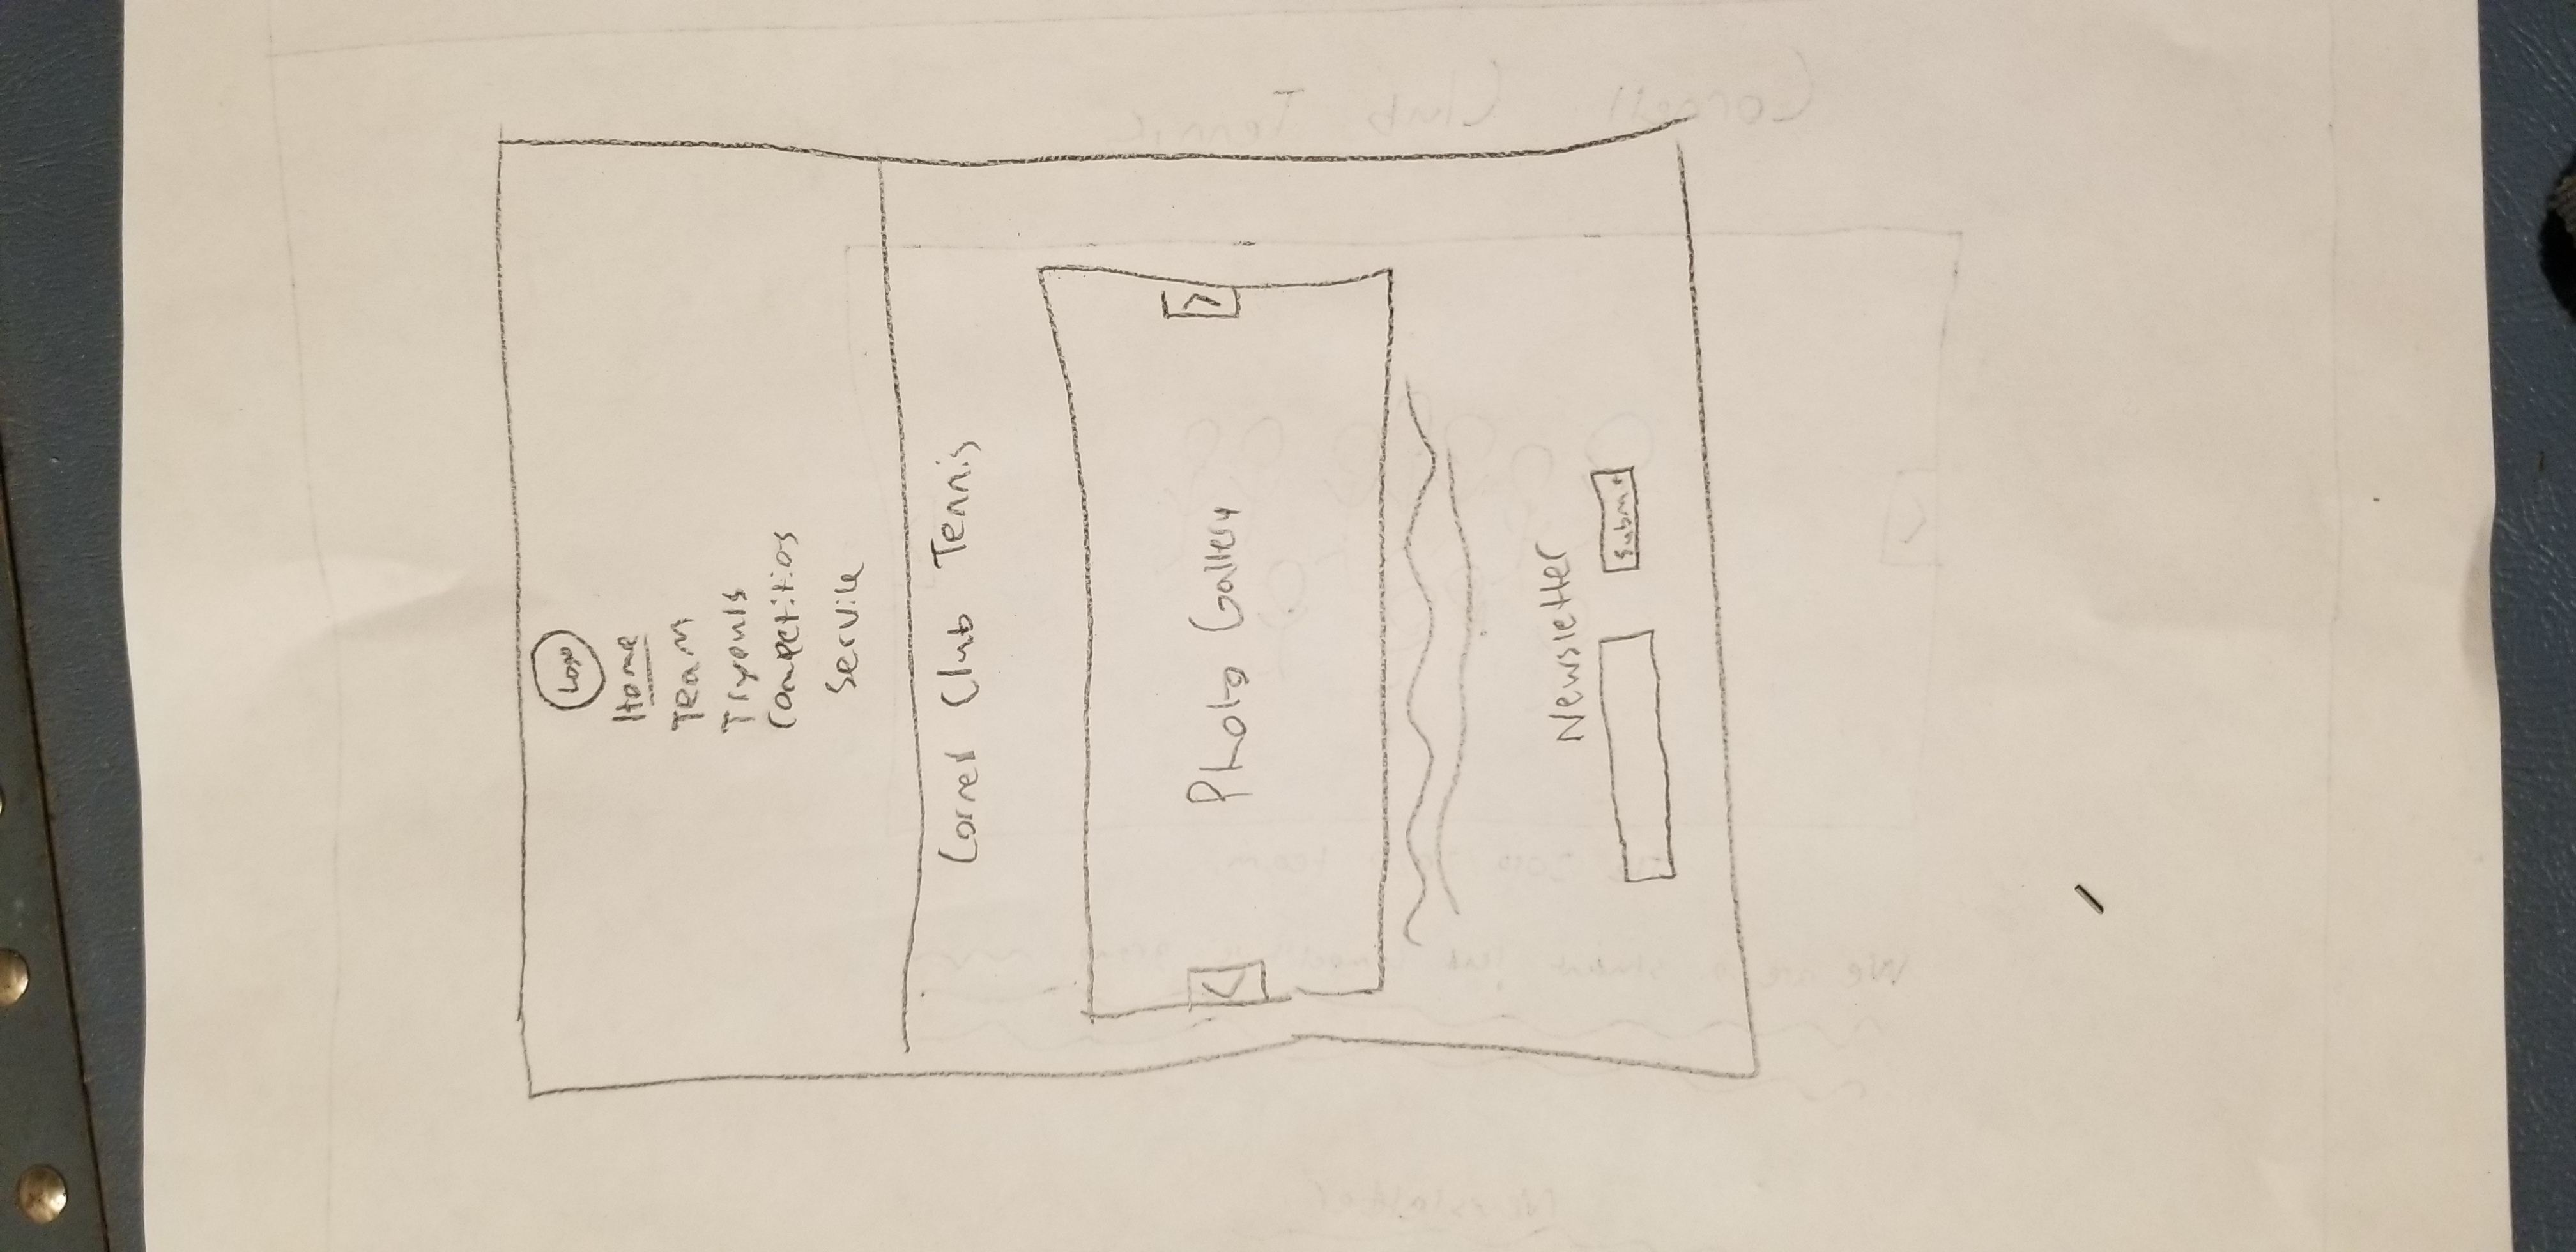 Logo
Home
Team
Tryouts
Competitios
Service
Cornell Club Tennis
<
Photo Gallery
>
Newsletter
Submit